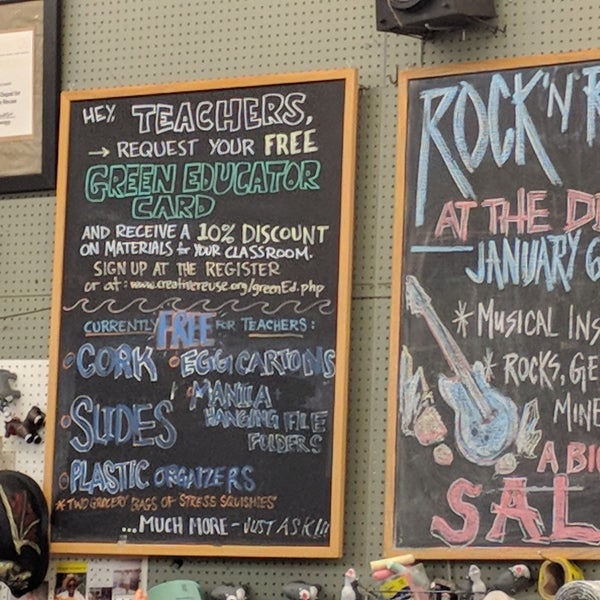 HEY, TEACHERS,
→ REQUEST YOUR FREE
GREEN EDUCATOR
CARD
AND RECEIVE A 10% DISCOUNT
ON MATERIALS for YOUR CLASSROOM.
SIGN UP AT THE REGISTER
or at: www.creativereuse.org/greenEd.php
CURRENTLY FREE FOR TEACHERS:
• CORK • EGG CARTONS
• MANILA
HANGING FILE
FOLDERS
• SLIDES
• PLASTIC ORGANIZERS
*TWO GROCERY BAGS OF STRESS SQUISHIES*
...MUCH MORE - JUST ASK!!!
ROCK'N R
AT THE D
JANUARY 6
* MUSICAL INS
* ROCKS, GE
MINE
A BIG
SAL